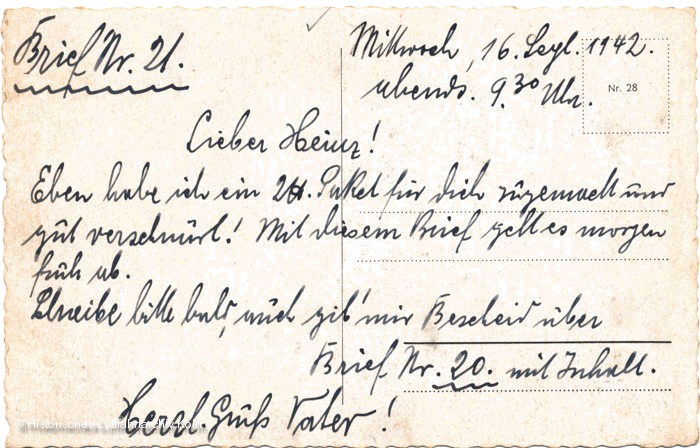 Brief Nr. 21.
Mittwoch, 16. Sept. 1942.
abends. 9.30 Uhr.
Nr. 28
Lieber Heinz!
Eben habe ich ein 2tt. Paket für dich zugemacht und
gut verschnürt! Mit diesem Brief geht es morgen
früh ab.
Schreibe bitte bald, auch gib mir Bescheid über
Brief Nr. 20. mit Inhalt.
Herzl. Gruß Vater!
© Historisches Luftfahrtarchiv Köln